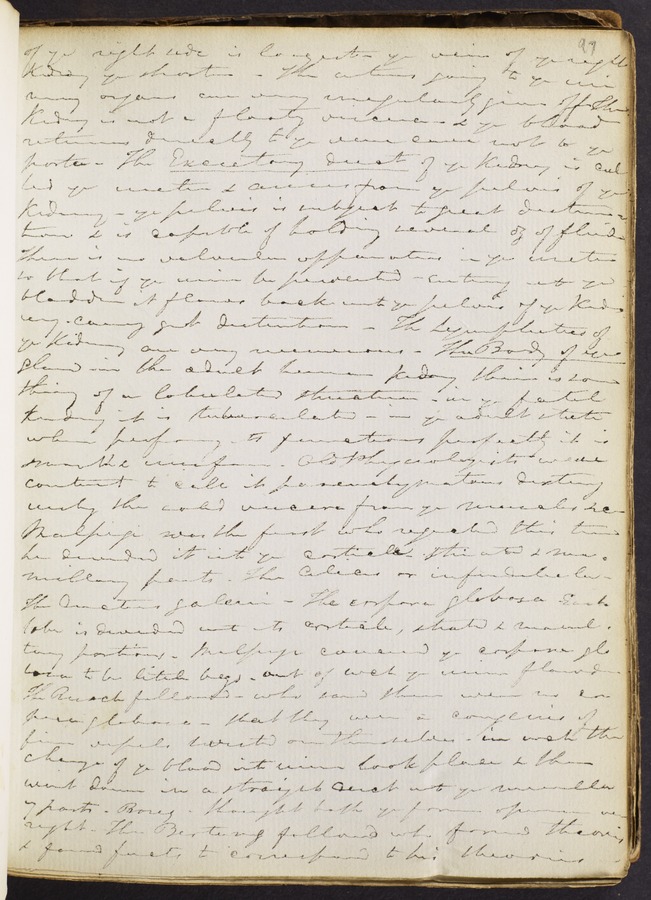 99
of ye right side is longest & ye vein of ye right
Kidney ye shortest - The arteries going to ye uri
nary organs are very irregularly given off The
Kidney is not a floating viscera & ye blood
returns directly to ye vena cava not to ye
porta - The Excretory duct of ye Kidney is cal
led ye ureter & arises from ye pelvis of ye
Kidney - ye pelvis is subject to great disten
tion & is capable of holding several oz of fluid
There is no valvular apparatus in ye ureter
so that if ye urine be prevented entering into ye
bladder it flows back into ye pelvis of ye Kid
ney causing gt distention - The Lymphatics of
ye Kidney are very numerous - The Body of ye
gland in the adult human Kidney there is some
thing of a lobulated structure - in ye foetal
Kidney it is tuberculated - in ye adult state
when performing its functions perfectly it is
smooth & uniform. Old Physiologists were
content to call it parenchymatous disting
uishg the solid viscera from ye muscles &c
Malpigi was the first who rejected this term
he divided it into ye cortical striated & ma
millary parts. The Calices or infundibula -
The Ductus galeni - The corpora globosa Each
lobe is divided into its cortical, striated & mamil
lary portions. Malpigi conceived ye corpora glo
bosa to be little bags out of wch ye urine flowed
The Ruysch followed - who said there were no cor
pora globosa - that they were a complexus of
fine vessels twisted on themselves - in wch the
change of ye blood into urine took place & then
went down in a straight duct into ye mamillar
y parts. Boerg. thought both ye former opinions were
right - The Bertin followed who formed theories
& found facts to correspond to his theories